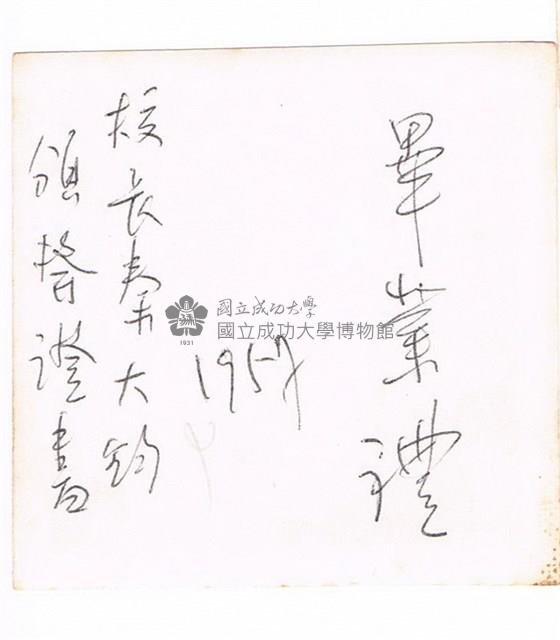 畢業禮
1957
校長秦大鈞
頒替證書
國立成功大學
國立成功大學博物館
1931